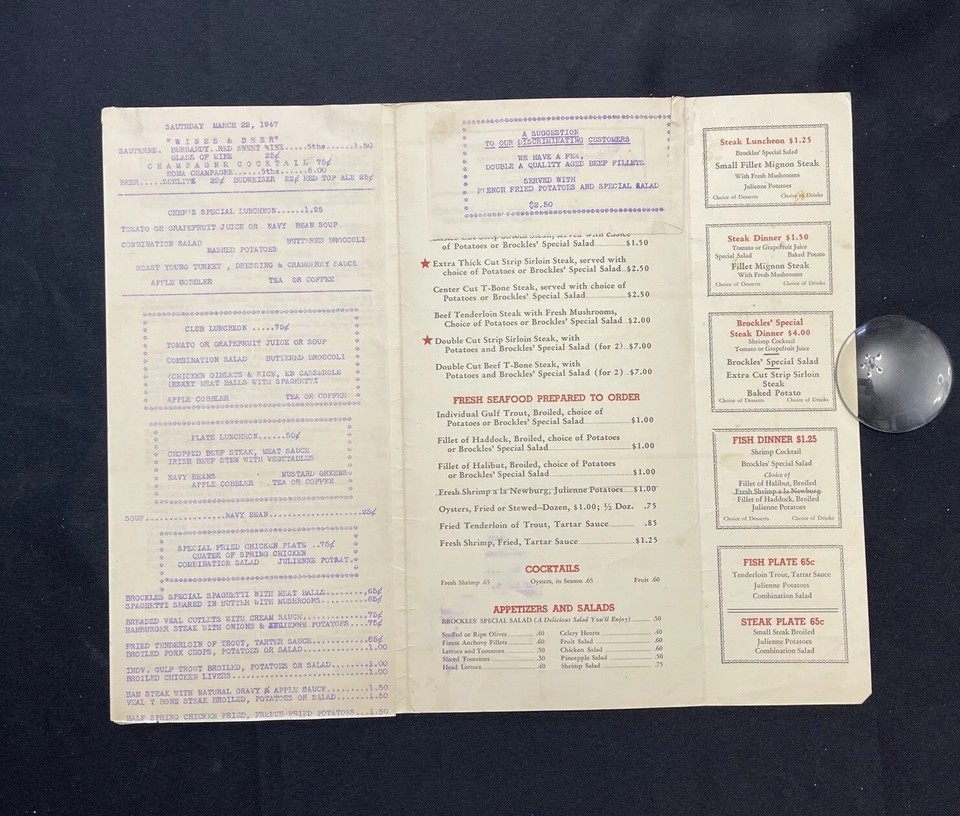 SAUTRDAY MARCH 22, 1947
"WINES & BEER"
SAUTERNE. BURGANDY.RED SWEET WINE.....5ths.......1.50
GLASS OF WINE 25¢
CHAMPAGNE COCKTAIL 75¢
ROMA CHAMPAGNE.....5ths....6.00
BEER.....SCHLITZ 22¢ BUDWEISER 22¢ RED TOP ALE 25¢
CHEF'S SPECIAL LUNCHEON......1.25
TOMATO OR GRAPEFRUIT JUICE OR NAVY BEAN SOUP
COMBINATION SALAD BUTTERED BROCCOLI
MASHED POTATOES
ROAST YOUNG TURKEY , DRESSING & CRANBERRY SAUCE
APPLE COBBLER TEA OR COFFEE
CLUB LUNCHEON .....75¢
TOMATO OR GRAPEFRUIT JUICE OR SOUP
COMBINATION SALAD BUTTERED BROCCOLI
(CHICKEN GIBLETS & RICE, EN CASSEROLE
(ROAST MEAT BALLS WITH SPAGHETTI
APPLE COBBLER TEA OR COFFEE
PLATE LUNCHEON......50¢
CHOPPED BEEF STEAK, MEAT SAUCE
IRISH BEEF STEW WITH VEGETABLES
NAVY BEANS MUSTARD GREENS
APPLE COBBLER TEA OR COFFEE
SOUP...............NAVY BEAN.................25¢
SPECIAL FRIED CHICKEN PLATE ..75¢
QUATER OF SPRING CHICKEN
COMBINATION SALAD JULIENNE POTAAT.
BROCKLES SPECIAL SPAGHETTI WITH MEAT BALLS........65¢
SPAGHETTI SEARED IN BUTTER WITH MUSHROOMS.........65¢
BREADED VEAL CUTLETS WITH CREAM SAUCE.............75¢
HAMBURGER STEAK WITH ONIONS & JULIENNE POTATOES...75¢
FRIED TENDERLOIN OF TROUT, TARTER SAUCE...........85¢
BROILED PORK CHOPS, POTATOES OR SALAD............1.00
INDV. GULF TROUT BROILED, POTATOES OR SALAD......1.00
BROILED CHICKEN LIVERS...........................1.00
HAM STEAK WITH NATURAL GRAVY & APPLE SAUCE.......1.50
VEAL T BONE STEAK BROILED, POTATOES OR SALAD.....1.50
HALF SPRING CHICKEN FRIED, FRENCH FRIED POTATOES...1.50
A SUGGESTION
TO OUR DISCRIMINATING CUSTOMERS
WE HAVE A FEW,
DOUBLE A QUALITY AGED BEEF FILLETS
SERVED WITH
FRENCH FRIED POTATOES AND SPECIAL SALAD
$2.50
Center Cut Strip Sirloin Steak, served with choice
of Potatoes or Brockles' Special Salad $1.50
★ Extra Thick Cut Strip Sirloin Steak, served with
choice of Potatoes or Brockles' Special Salad $2.50
Center Cut T-Bone Steak, served with choice of
Potatoes or Brockles' Special Salad $2.50
Beef Tenderloin Steak with Fresh Mushrooms,
Choice of Potatoes or Brockles' Special Salad $2.00
★ Double Cut Strip Sirloin Steak, with
Potatoes and Brockles' Special Salad (for 2) $7.00
Double Cut Beef T-Bone Steak, with
Potatoes and Brockles' Special Salad (for 2) $7.00
FRESH SEAFOOD PREPARED TO ORDER
Individual Gulf Trout, Broiled, choice of
Potatoes or Brockles' Special Salad $1.00
Fillet of Haddock, Broiled, choice of Potatoes
or Brockles' Special Salad $1.00
Fillet of Halibut, Broiled, choice of Potatoes
or Brockles' Special Salad $1.00
Fresh Shrimp a la Newburg, Julienne Potatoes $1.00
Oysters, Fried or Stewed—Dozen, $1.00; ½ Doz. .75
Fried Tenderloin of Trout, Tartar Sauce .85
Fresh Shrimp, Fried, Tartar Sauce $1.25
COCKTAILS
Fresh Shrimp .65 Oysters, in Season .65 Fruit .60
APPETIZERS AND SALADS
BROCKLES' SPECIAL SALAD (A Delicious Salad You'll Enjoy) .50
Stuffed or Ripe Olives .40 Celery Hearts .40
Finest Anchovy Fillets .60 Fruit Salad .60
Lettuce and Tomatoes .50 Chicken Salad .60
Sliced Tomatoes .30 Pineapple Salad .50
Head Lettuce .40 Shrimp Salad .75
Steak Luncheon $1.25
Brockles' Special Salad
Small Fillet Mignon Steak
With Fresh Mushrooms
Julienne Potatoes
Choice of Desserts Choice of Drinks
Steak Dinner $1.50
Tomato or Grapefruit Juice
Special Salad Baked Potato
Fillet Mignon Steak
With Fresh Mushrooms
Choice of Desserts Choice of Drinks
Brockles' Special
Steak Dinner $4.00
Shrimp Cocktail
Tomato or Grapefruit Juice
Brockles' Special Salad
Extra Cut Strip Sirloin
Steak
Baked Potato
Choice of Desserts Choice of Drinks
FISH DINNER $1.25
Shrimp Cocktail
Brockles' Special Salad
Choice of
Fillet of Halibut, Broiled
Fresh Shrimp a la Newburg
Fillet of Haddock, Broiled
Julienne Potatoes
Choice of Desserts Choice of Drinks
FISH PLATE 65c
Tenderloin Trout, Tartar Sauce
Julienne Potatoes
Combination Salad
STEAK PLATE 65c
Small Steak Broiled
Julienne Potatoes
Combination Salad